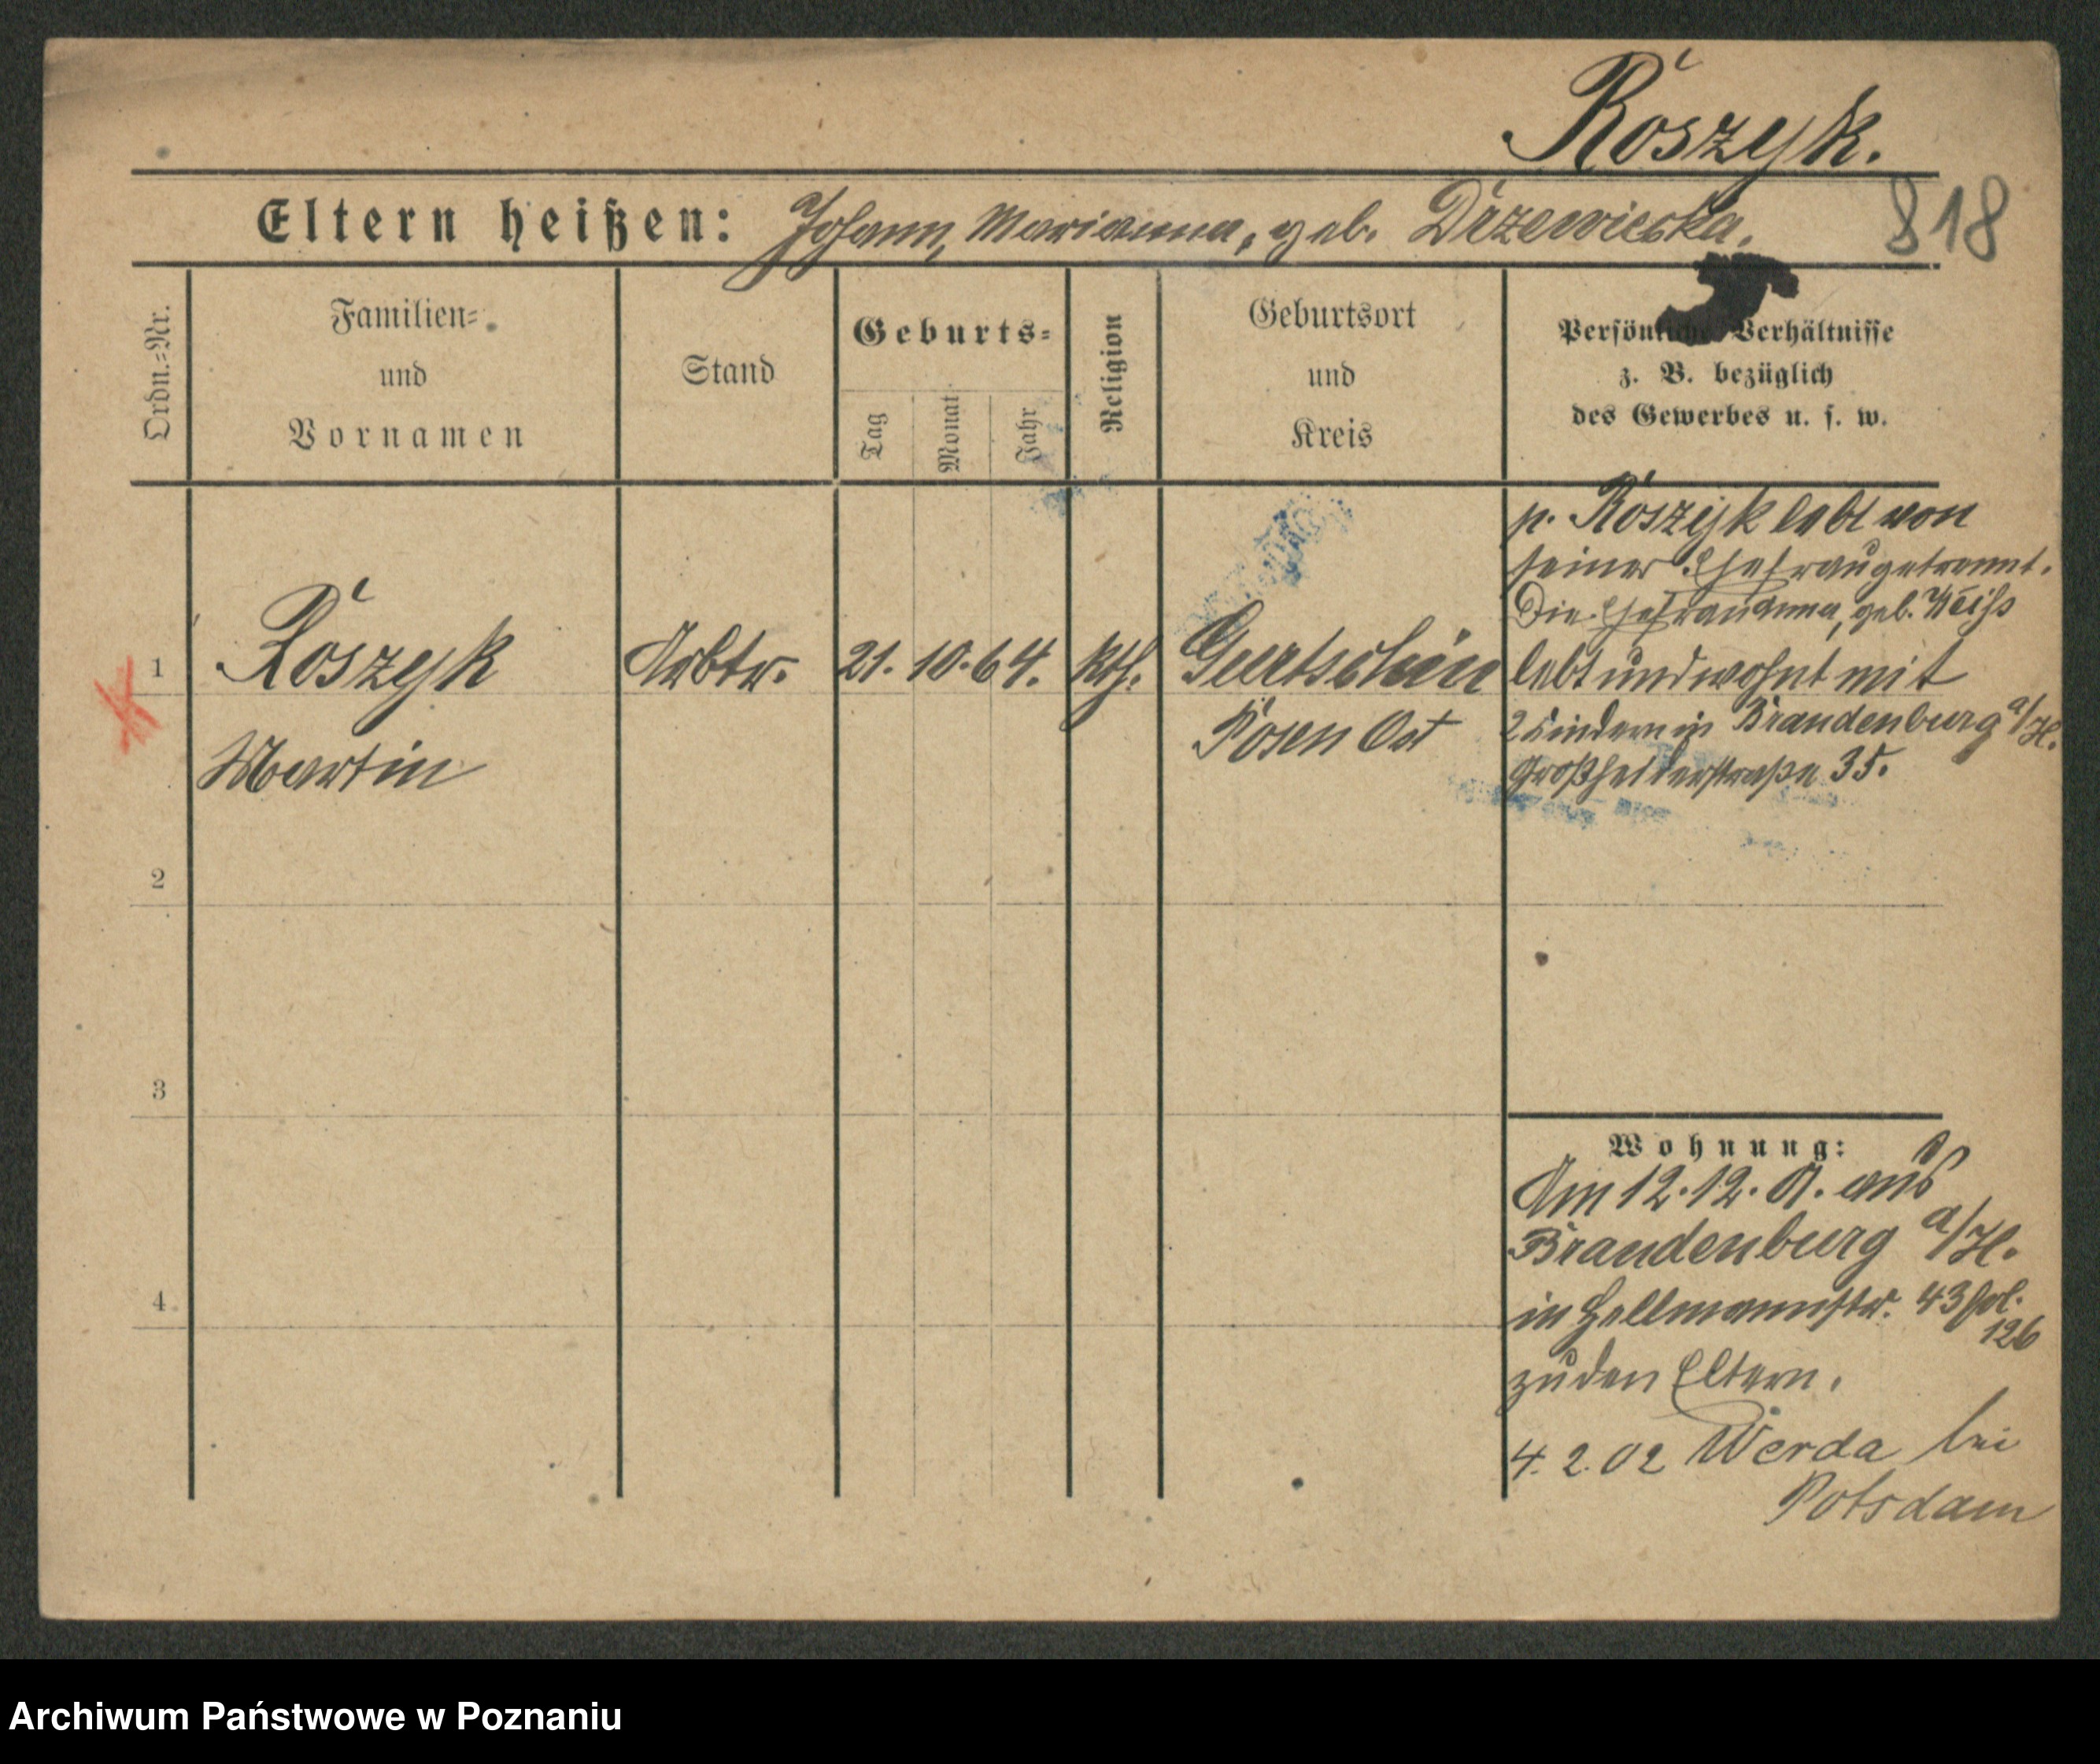 Roszyk.
Eltern heißen: Johann, Marianna, geb. Drzewiecka.
818
Ordn.=Nr.
Familien=
und
Vornamen
Stand
Geburts=
Tag
Monat
Jahr
Religion
Geburtsort
und
Kreis
Persönliche Verhältnisse
z. B. bezüglich
des Gewerbes u. s. w.
1
Roszyk
Martin
Arbtr.
21. 10. 64.
kth.
Gurtschin
Posen Ost
p. Roszyk lebt von
seiner Ehefrau getrennt.
Die Ehefrau Anna, geb. Weiss
lebt und wohnt mit
2 Kindern in Brandenburg a/H.
Großheiderstraße 35.
2
3
4
Wohnung:
Am 12. 12. 01. aus
Brandenburg a/H.
in 43 Pol.
126
zu den Eltern.
4. 2. 02 Werda bei
Potsdam
Archiwum Państwowe w Poznaniu